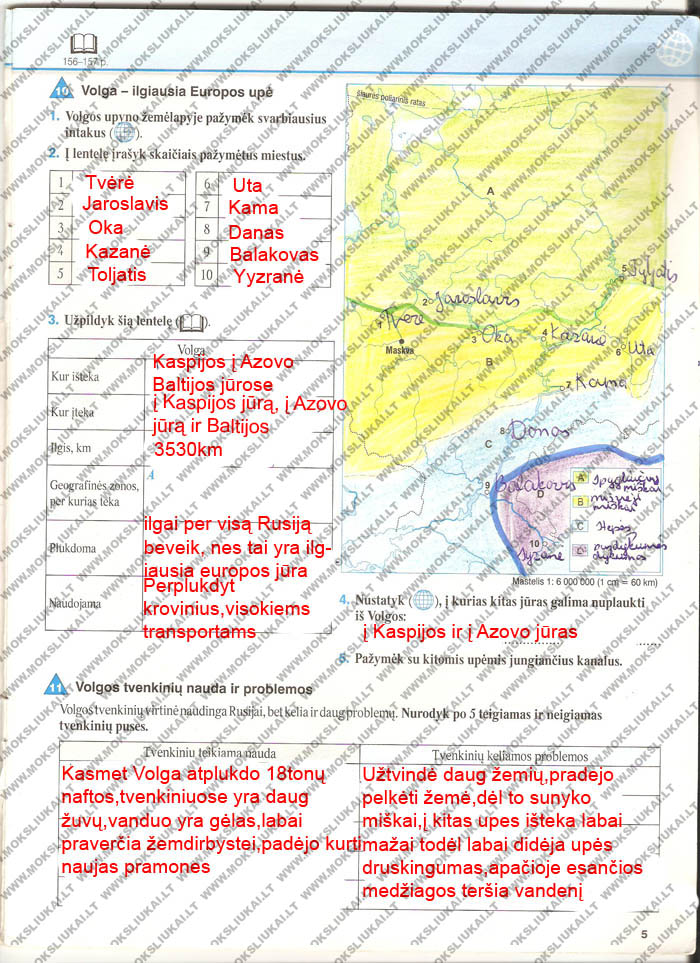 156–157 p.
10 Volga – ilgiausia Europos upė
1. Volgos upyno žemėlapyje pažymėk svarbiausius
intakus ( ).
2. Į lentelę įrašyk skaičiais pažymėtus miestus.
1 Tvėrė 6 Uta
2 Jaroslavis 7 Kama
3 Oka 8 Danas
4 Kazanė 9 Balakovas
5 Toljatis 10 Yyzranė
3. Užpildyk šią lentelę ( ).
Volga
Kur išteka
Kaspijos į Azovo
Baltijos jūrose
Kur įteka
į Kaspijos jūrą, į Azovo
jūrą ir Baltijos
Ilgis, km
3530km
Geografinės zonos,
per kurias teka
Plukdoma
ilgai per visą Rusiją
beveik, nes tai yra ilg-
iausia europos jūra
Naudojama
Perplukdyt
krovinius,visokiems
transportams
šiaurės poliarinis ratas
A
5 Tyljatis
2 Jaroslavis
1 Tverė
Maskva
3 Oka
4 Kazanė
6 Uta
B
7 Kama
8 Donos
C
9 Balakovis
D
10 Syzranė
A Spygliuočių miškai
B mišrieji miškai
C Stepės
D pusdykumės dykumos
Mastelis 1: 6 000 000 (1 cm = 60 km)
4. Nustatyk ( ), į kurias kitas jūras galima nuplaukti
iš Volgos:
į Kaspijos ir į Azovo jūras
5. Pažymėk su kitomis upėmis jungiančius kanalus.
11 Volgos tvenkinių nauda ir problemos
Volgos tvenkinių virtinė naudinga Rusijai, bet kelia ir daug problemų. Nurodyk po 5 teigiamas ir neigiamas
tvenkinių puses.
Tvenkinių teikiama nauda
Kasmet Volga atplukdo 18tonų
naftos,tvenkiniuose yra daug
žuvų,vanduo yra gėlas,labai
praverčia žemdirbystei,padėjo kurti
naujas pramonės
Tvenkinių keliamos problemos
Užtvindė daug žemių,pradėjo
pelkėti žemė,dėl to sunyko
miškai,į kitas upes išteka labai
mažai todėl labai didėja upės
druskingumas,apačioje esančios
medžiagos teršia vandenį
5
WWW.MOKSLIUKAI.LT